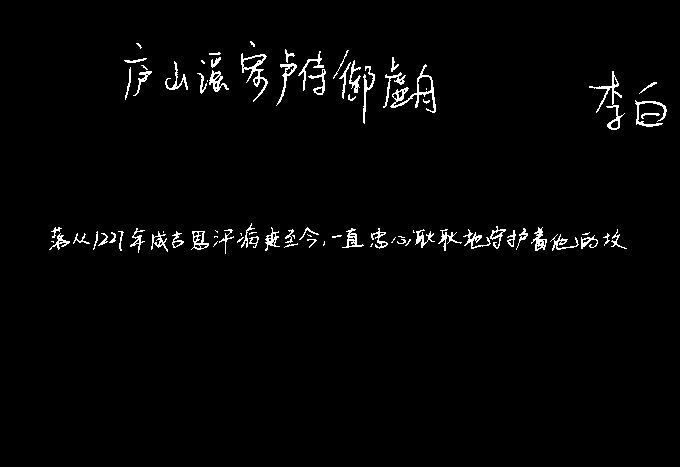 庐山谣寄卢侍御虚舟
李白
落从1227年成吉思汗病逝至今,一直忠心耿耿地守护着他的坟